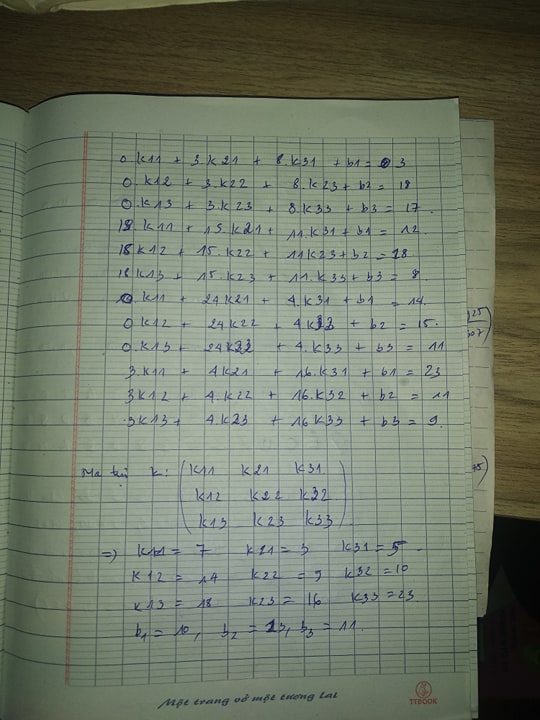 0.k11 + 3.k21 + 8.k31 + b1 = 3
0.k12 + 3.k22 + 8.k23 + b2 = 18
0.k13 + 3.k23 + 8.k33 + b3 = 17.
18 k11 + 15.k21 + 11.k31 + b1 = 12.
18 k12 + 15.k22 + 11k23 + b2 = 28
18 k13 + 15.k23 + 11.k33 + b3 = 8.
0.k11 + 24k21 + 4.k31 + b1 = 14.
0 k12 + 24k22 + 4k32 + b2 = 15.
0.k13 + 24k23 + 4.k33 + b3 = 11
3 k11 + 4k21 + 16.k31 + b1 = 23
3k12 + 4.k22 + 16.k32 + b2 = 11
3k13 + 4.k23 + 16k33 + b3 = 9.
Ma trận k: k11 k21 k31
k12 k22 k32
k13 k23 k33
=> k11 = 7 k21 = 3 k31 = 5.
k12 = 14 k22 = 9 k32 = 10
k13 = 18 k23 = 16 k33 = 23
b1 = 10, b2 = 23, b3 = 11.
Một trang vở một tương lai
TTBOOK